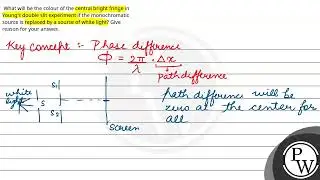 What will be the colour of the central bright fringe in
Young's double slit experiment if the monochromatic
source is replaced by a source of white light? Give
reason for your answer.
Key concept :- Phase difference
Φ = 2π/λ · Δx
path difference
white
light
S1
S
S2
screen
path difference will be
zero at the center for
all
PW